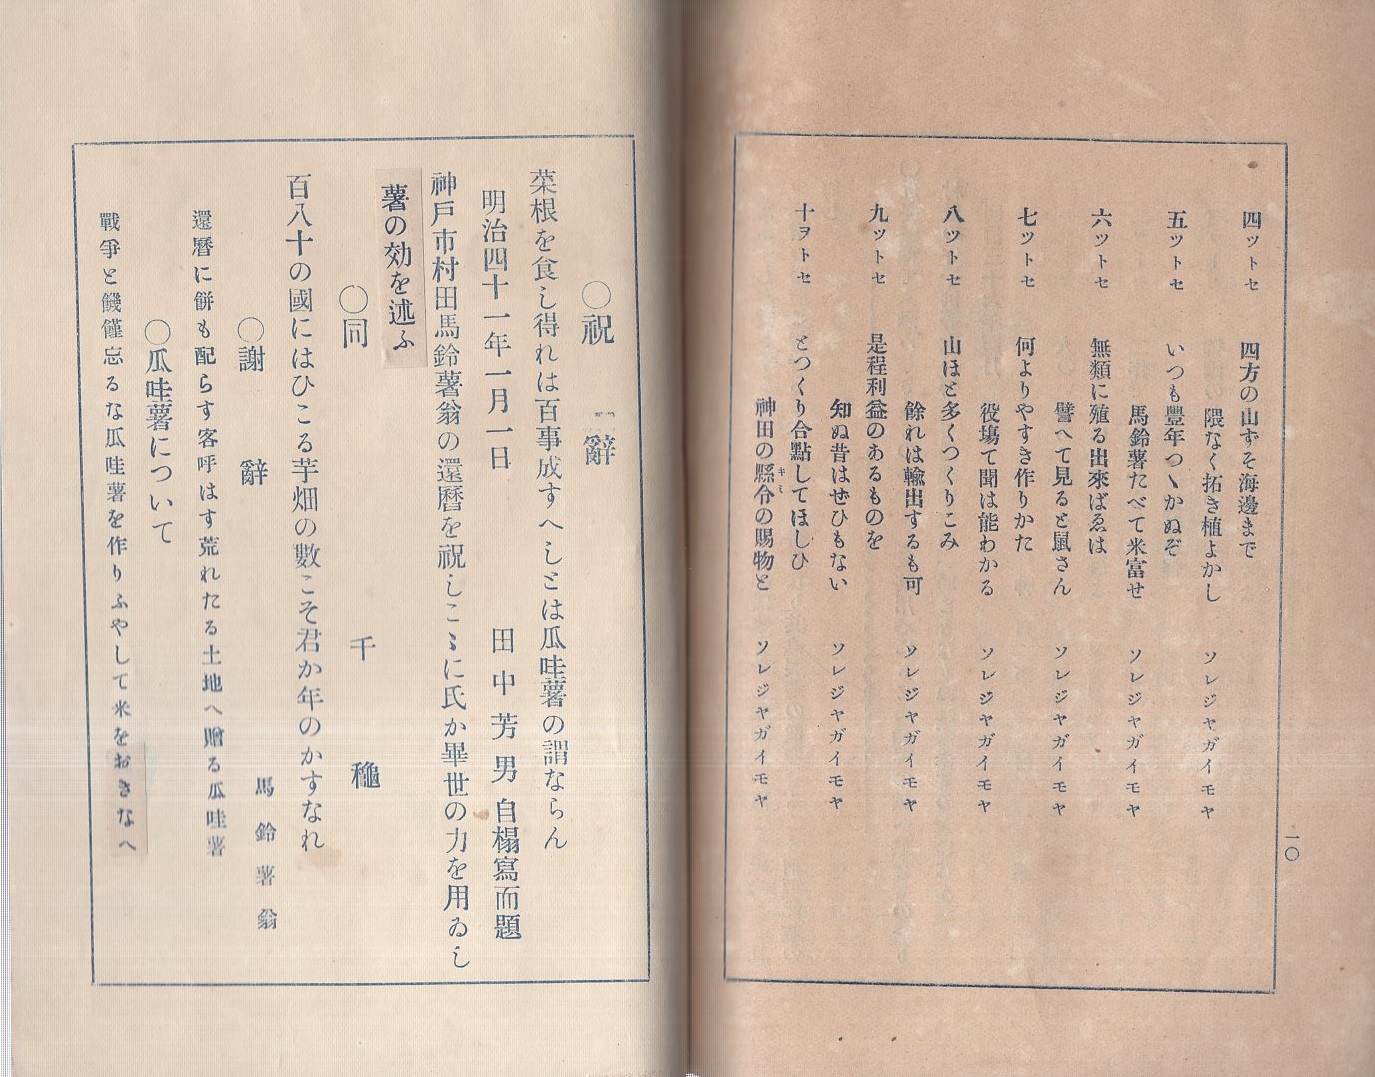 四ツトセ 四方の山すそ海邊まで
隈なく拓き植よかし ソレジヤガイモヤ
五ツトセ いつも豐年つゝかぬぞ
馬鈴薯たべて米富せ ソレジヤガイモヤ
六ツトセ 無類に殖る出來ばゑは
譬へて見ると鼠さん ソレジヤガイモヤ
七ツトセ 何よりやすき作りかた
役塲て聞は能わかる ソレジヤガイモヤ
八ツトセ 山ほと多くつくりこみ
餘れは輸出するも可 ソレジヤガイモヤ
九ツトセ 是程利益のあるものを
知ぬ昔はぜひもない ソレジヤガイモヤ
十ヲトセ とつくり合點してほしひ
神田の縣令の賜物と ソレジヤガイモヤ
キミ
一〇
〇祝辭
菜根を食し得れは百事成すへしとは瓜哇薯の謂ならん
明治四十一年一月一日 田中芳男自榻寫而題
神戸市村田馬鈴薯翁の還曆を祝しこゝに氏か畢世の力を用ゐし
薯の効を述ふ
〇同 千穐
百八十の國にはひこる芋畑の數こそ君か年のかすなれ
〇謝辭 馬鈴薯翁
還曆に餅も配らす客呼はす荒れたる土地へ贈る瓜哇薯
〇瓜哇薯について
戰爭と饑饉忘るな瓜哇薯を作りふやして米をおきなへ